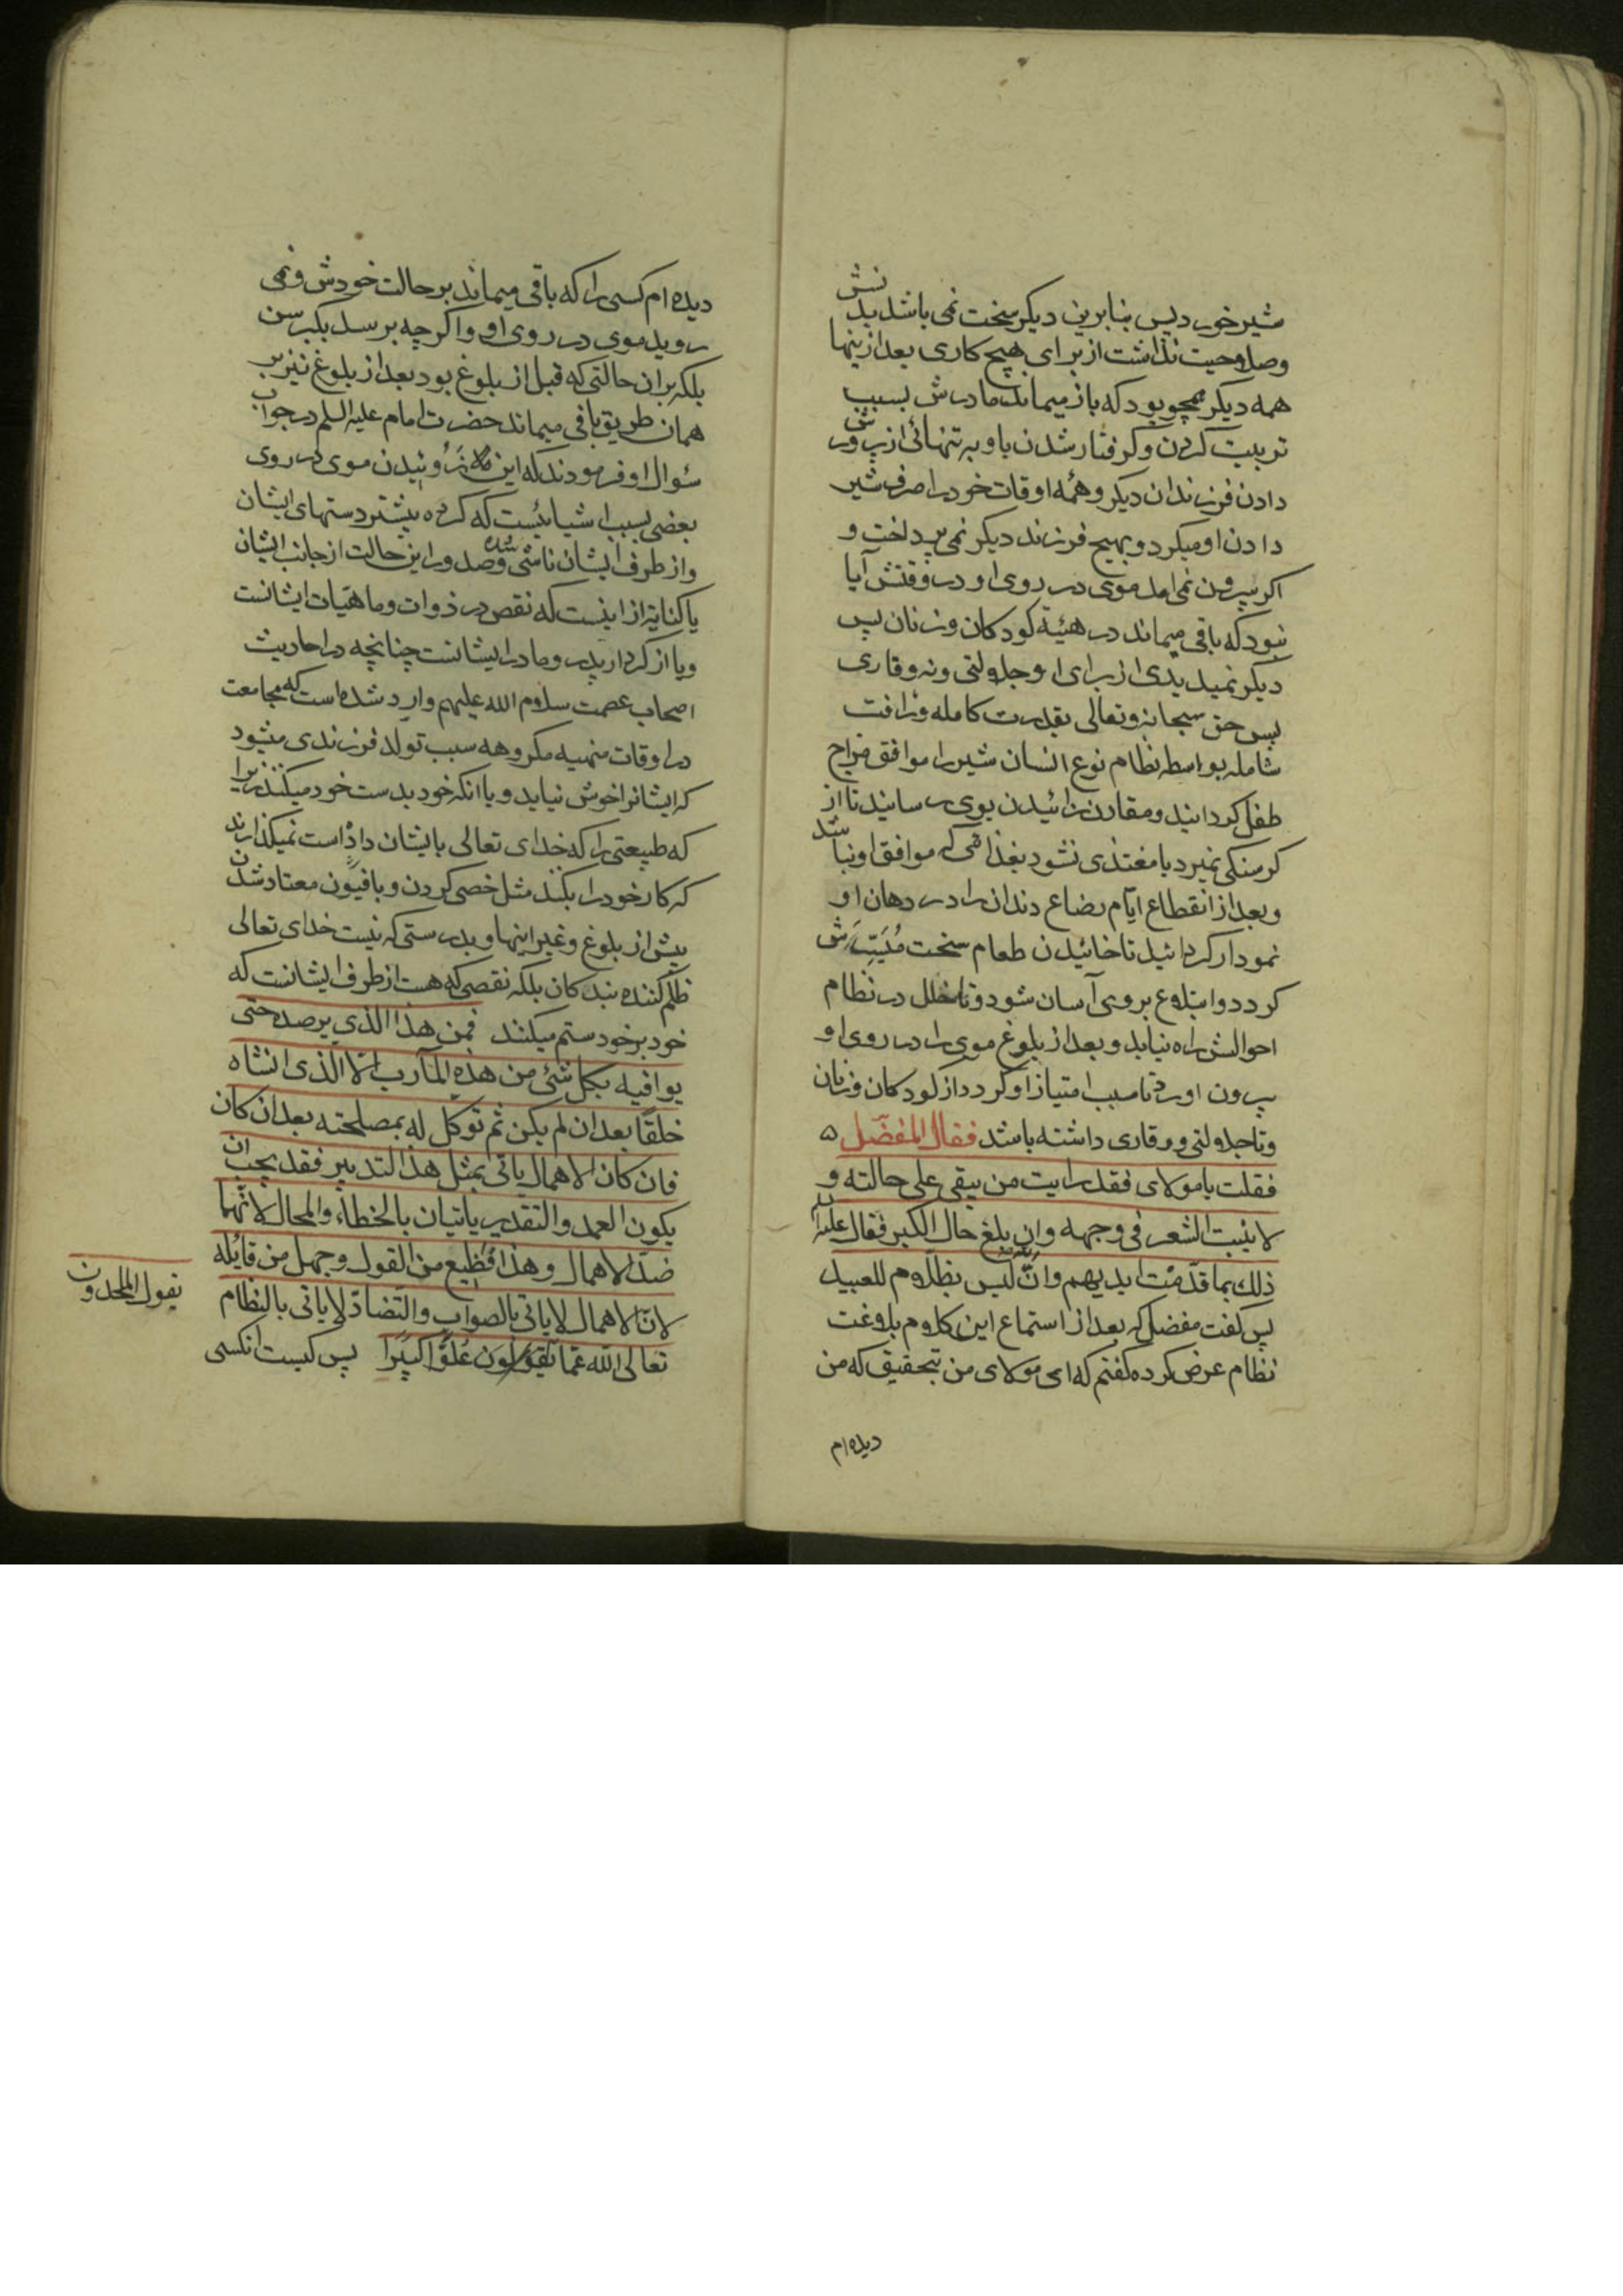 شیر خورد پس بنابرین دیکر سخت نمی باشد بدنش
وصلاحیت نداشت از برای هیچ کاری بعد ازینها
همه دیکر همچو بود که باز میماند مادرش بسبب
تربیت کردن و کرفتار شدن باو به تنهائی از پرورش
دادن فرزندان دیکر و همه اوقات خود را صرف شیر
دادن او میکرد و بهیچ فرزند دیکر نمی پرداخت و
اکر بیرون نمی امد موی در روی او در وقتش آیا
نبود که باقی میماند در هیئة کودکان و زنان پس
دیکر نمیدیدی از برای او جلالتی و نه وقاری
پس حق سبحانه و تعالی بقدرت کامله و رافت
شامله بواسطه نظام نوع انسان شیر را موافق مزاج
طفل کردانید و مقارن زائیدن بوی رسانید تا از
کرسنکی نمیرد یا مغتذی نشود بغذائی که موافق او نباشد
و بعد از انقطاع ایام رضاع دندان را در دهان او
نمودار کردانید تا خائیدن طعام سخت میسرش
کردد و ابتلاع بروی آسان شود و تا خلل در نظام
احوالش راه نیابد و بعد از بلوغ موی را در روی او
بیرون اورد تا سبب امتیاز او کردد از کودکان و زنان
و تا جلالتی و وقاری داشته باشد فقال المفضّل ۵
فقلت یا مولای فقد رایت من یبقی علی حالته و
لا ینبت الشعر فی وجهه وان بلغ حال الکبر فقال علیه السلم
ذلك بما قدّمت ایدیهم وانّ الله لیس بظلّام للعبید
پس کفت مفضل که بعد از استماع این کلام بلاغت
نظام عرض کرده کفتم که ای مولای من بتحقیق که من
دیده ام
دیده ام کسی را که باقی میماند بر حالت خودش و نمی
روید موی در روی او و اکرچه برسد بکبر سن
بلکه بران حالتی که قبل از بلوغ بود بعد از بلوغ نیز بر
همان طریق باقی میماند حضرت امام علیه السلم در جواب
سئوال او فرمودند که این نروئیدن موی در روی
بعضی بسبب اشیائیست که کرده پیشتر دستهای ایشان
و از طرف ایشان ناشی شده و صدور این حالت از جانب ایشان
یا کنایة از اینست که نقص در ذوات و ماهیات ایشانست
و یا از کردار پدر و مادر ایشانست چنانچه در احادیث
اصحاب عصمت سلام الله علیهم وارد شده است که مجامعت
در اوقات منهیه مکروهه سبب تولد فرزندی میشود
که ایشانرا خوش نیاید و یا انکه خود بدست خود میکنند زیرا
که طبیعتی را که خدای تعالی بایشان داده است نمیکذارند
که کار خود را بکند مثل خصی کردن و بافیون معتاد شدن
پیش از بلوغ و غیر اینها و بدرستی که نیست خدای تعالی
ظلم کننده بندکان بلکه نقصی که هست از طرف ایشانست که
خود بر خود ستم میکنند فمن هذا الذی یرصده حتی
یوافیه بکل شئ من هذه المآرب الا الذی انشاه
خلقًا بعد ان لم یکن ثم توکل له بمصلحته بعد ان کان
فان کان الاهمال یاتی بمثل هذا التدبیر فقد یجب ان
یکون العمد والتقدیر یاتیان بالخطاء والمحال لانّهما
ضدّ الاهمال وهذا فظیع من القول وجهل من قائله
لانّ الاهمال لا یاتی بالصواب والتضادّ لا یاتی بالنظام
تعالی الله عمّا یقولون علوًّا کبیرًا پس کیست انکسی
یقول الملحدون